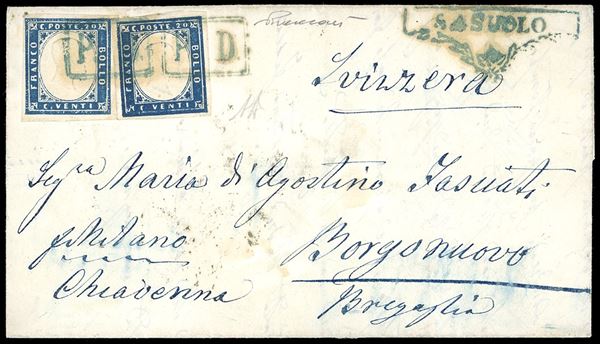 C. POSTE. 20
FRANCO
BOLLO
C. VENTI
C. POSTE. 20
FRANCO
BOLLO
C. VENTI
P. D.
SASUOLO
Svizzera
Seg.ra Maria di Agostino
p Milano
Borgonuovo
Chiavenna
Bregaglia